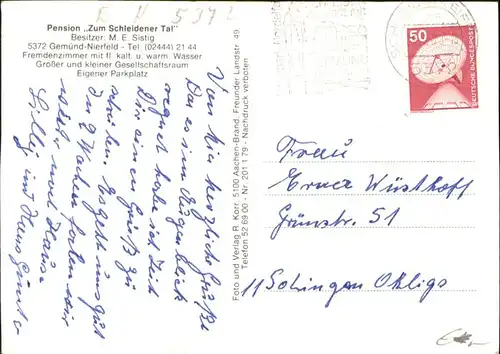 E H 5372
Pension „Zum Schleidener Tal"
Besitzer: M. E. Sistig
5372 Gemünd-Nierfeld - Tel (02444) 21 44
Fremdenzimmer mit fl. kalt. u. warm. Wasser
Großer und kleiner Gesellschaftsraum
Eigener Parkplatz
Von hier herzliche Grüße
Da es im Augenblick
regnet habe ich Zeit
Dir einen Gruß zu
schreiben. Es geht uns gut
In 2 Wochen fahren wir
wieder nach Hause
und Hans Günter
Foto und Verlag R. Korr, 5100 Aachen-Brand, Freunder Landstr. 49,
Telefon 52 69 00 - Nr. 201 1 79 - Nachdruck verboten
50
DEUTSCHE BUNDESPOST
Frau
Erna Wüsthoff
Grünstr. 51
11 Solingen Ohligs